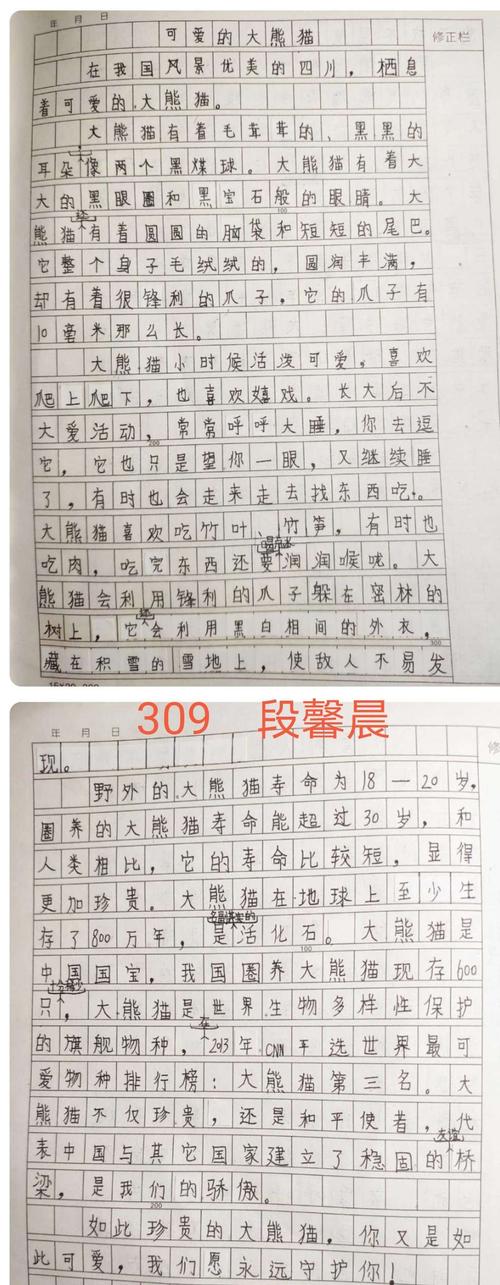 年 月 日
修正栏
可爱的大熊猫
在我国风景优美的四川，栖息
着可爱的大熊猫。
大熊猫有着毛茸茸的、黑黑的
耳朵像两个黑煤球。大熊猫有着大
大的黑眼圈和黑宝石般的眼睛。大
100
熊猫有着圆圆的脑袋和短短的尾巴。
它整个身子毛绒绒的，圆润丰满，
却有着很锋利的爪子，它的爪子有
10毫米那么长。
大熊猫小时候活泼可爱，喜欢
爬上爬下，也喜欢嬉戏。长大后不
大爱活动，常常呼呼大睡，你去逗
200
它，它也只是望你一眼，又继续睡
了，有时也会走来走去找东西吃。
大熊猫喜欢吃竹叶、竹笋，有时也
吃肉，吃完东西还要润润喉咙。大
熊猫会利用锋利的爪子躲在密林的
树上，它会利用黑白相间的外衣，
300
藏在积雪的雪地上，使敌人不易发
年 月 日
309 段馨晨
现。
野外的大熊猫寿命为18—20岁，
圈养的大熊猫寿命能超过30岁，和
人类相比，它的寿命比较短，显得
更加珍贵。大熊猫在地球上至少生
名副其实的
存了800万年，是活化石。大熊猫是
100
中国国宝，我国圈养大熊猫现存600
只，大熊猫是世界生物多样性保护
在
的旗舰物种，2013年CNN平选世界最可
爱物种排行榜：大熊猫第三名。大
熊猫不仅珍贵，还是和平使者，代
友谊
表中国与其它国家建立了稳固的桥
梁，是我们的骄傲。
200
如此珍贵的大熊猫，你又是如
此可爱，我们愿永远守护你！